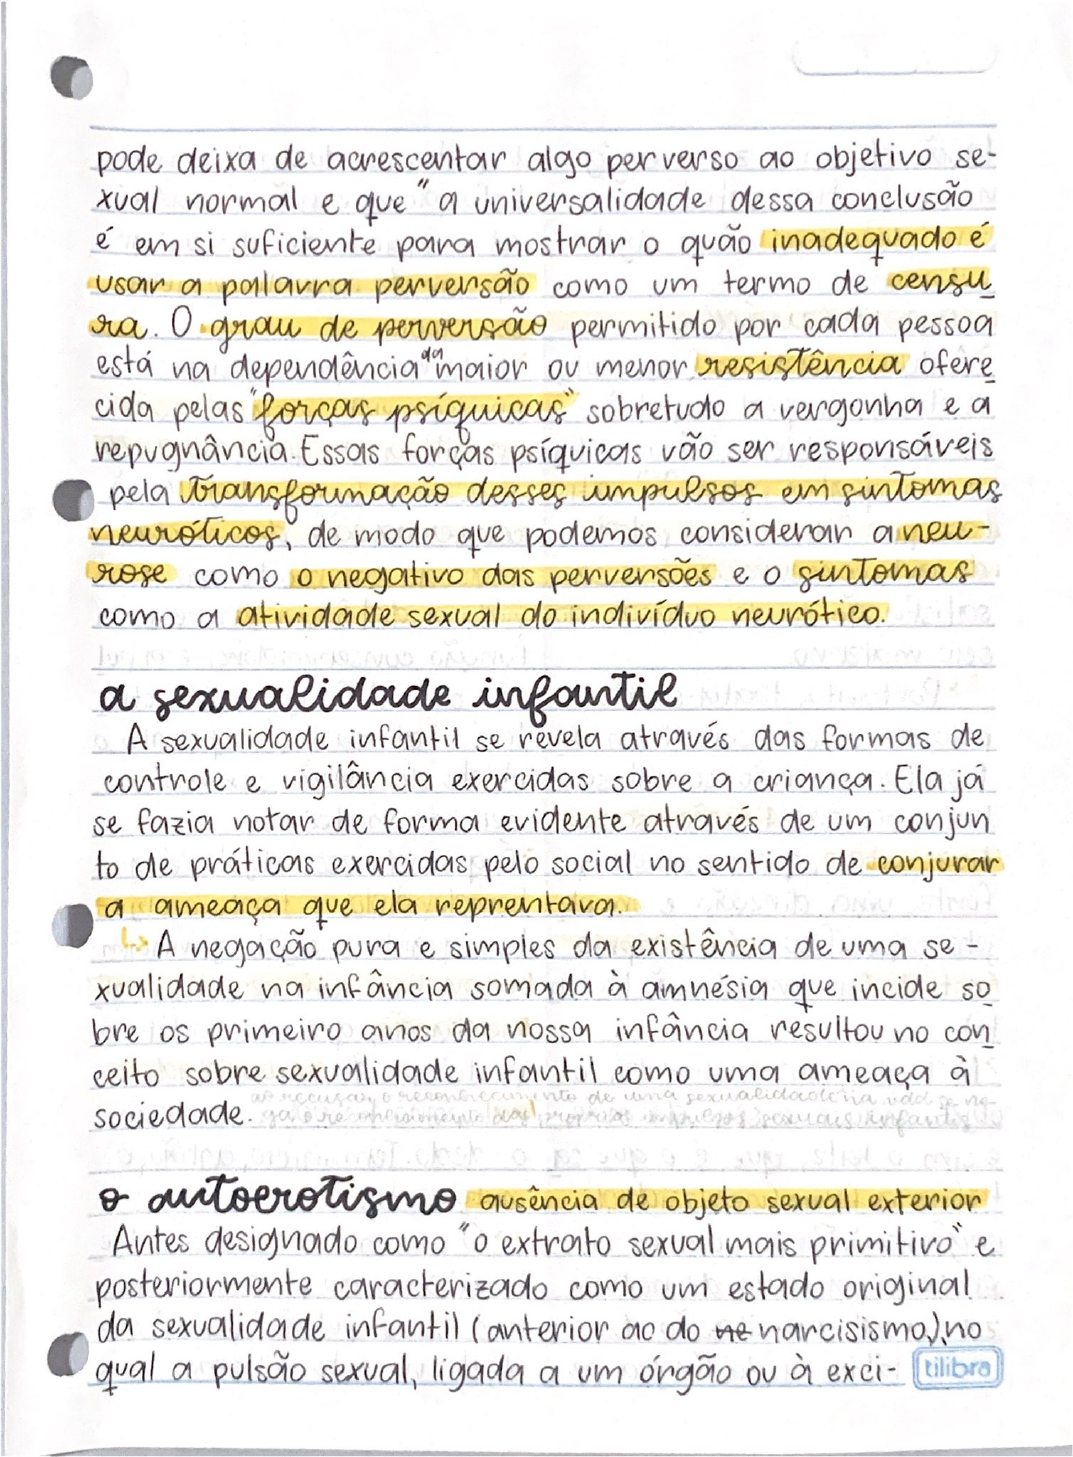 pode deixa de acrescentar algo perverso ao objetivo se-
xual normal e que "a universalidade dessa conclusão
é em si suficiente para mostrar o quão inadequado é
usar a palavra perversão como um termo de censu
ra. O grau de perversão permitido por cada pessoa
está na dependência da maior ou menor resistência ofere
cida pelas "forças psíquicas" sobretudo a vergonha e a
repugnância. Essas forças psíquicas vão ser responsáveis
pela transformação desses impulsos em sintomas
neuróticos, de modo que podemos considerar a neu-
rose como o negativo das perversões e o sintomas
como a atividade sexual do indivíduo neurótico.
a sexualidade infantil
A sexualidade infantil se revela através das formas de
controle e vigilância exercidas sobre a criança. Ela já
se fazia notar de forma evidente através de um conjun
to de práticas exercidas pelo social no sentido de conjurar
a ameaça que ela reprentava.
↳ A negação pura e simples da existência de uma se-
xualidade na infância somada à amnésia que incide so
bre os primeiro anos da nossa infância resultou no con
ceito sobre sexualidade infantil como uma ameaça à
ao recusar o reconhecimento de uma sexualidade
sociedade.
impulsos sexuais infantis
o autoerotismo ausência de objeto sexual exterior
Antes designado como "o extrato sexual mais primitivo" e
posteriormente caracterizado como um estado original
da sexualidade infantil (anterior ao do ne narcisismo), no
qual a pulsão sexual, ligada a um órgão ou à exci-
tilibra